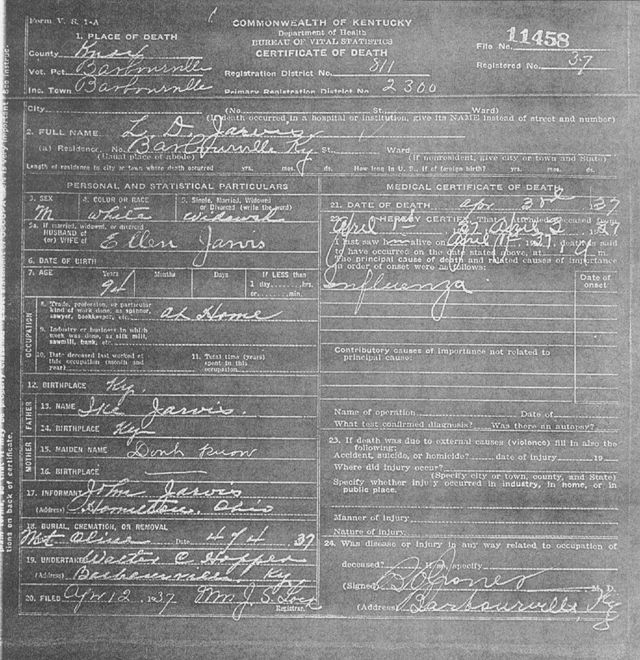 Form V. S. 1-A
COMMONWEALTH OF KENTUCKY
Department of Health
BUREAU OF VITAL STATISTICS
CERTIFICATE OF DEATH
File No. 11458
Registered No. 37
1. PLACE OF DEATH
County Knox
Vot. Pct. Barbourville
Inc. Town Barbourville
Registration District No. 811
Primary Registration District No. 2300
City (No. St. Ward)
(If death occurred in a hospital or institution, give its NAME instead of street and number)
2. FULL NAME L. D. Jarvis
(a) Residence. No. Barbourville Ky St. Ward
(Usual place of abode) (If nonresident, give city or town and State)
Length of residence in city or town where death occurred yrs. mos. ds. How long in U. S., if of foreign birth? yrs. mos. ds.
PERSONAL AND STATISTICAL PARTICULARS
3. SEX M
4. COLOR OR RACE white
5. Single, Married, Widowed, or Divorced (write the word) widowed
5a. If married, widowed, or divorced
HUSBAND of
(or) WIFE of Ellen Jarvis
6. DATE OF BIRTH
7. AGE Years 94 Months Days If LESS than
1 day, hrs.
or min.
OCCUPATION
8. Trade, profession, or particular
kind of work done, as spinner,
sawyer, bookkeeper, etc. at Home
9. Industry or business in which
work was done, as silk mill,
sawmill, bank, etc.
10. Date deceased last worked at
this occupation (month and
year)
11. Total time (years)
spent in this
occupation
12. BIRTHPLACE Ky.
FATHER
13. NAME Ike Jarvis.
14. BIRTHPLACE Ky
MOTHER
15. MAIDEN NAME Dont know
16. BIRTHPLACE —
17. INFORMANT John Jarvis
(Address) Ohio
18. BURIAL, CREMATION, OR REMOVAL
Mt Olive Date 4/4 37
19. UNDERTAKER Walter C Hopper
(Address) Barbourville Ky
20. FILED Apr 12, 1937 Mrs J. S. Lock
Registrar.
MEDICAL CERTIFICATE OF DEATH
21. DATE OF DEATH Apr 3rd 1937
22. I HEREBY CERTIFY, That I attended deceased from
April 1 37, April 3, 1937
I last saw him alive on April 1937, death is said
to have occurred on the date stated above, at m.
The principal cause of death and related causes of importance
in order of onset were as follows:
Date of
onset
Influenza
Contributory causes of importance not related to
principal cause:
Name of operation Date of
What test confirmed diagnosis? Was there an autopsy?
23. If death was due to external causes (violence) fill in also the
following:
Accident, suicide, or homicide? date of injury 19
Where did injury occur?
(Specify city or town, county, and State)
Specify whether injury occurred in industry, in home, or in
public place.
Manner of injury
Nature of injury
24. Was disease or injury in any way related to occupation of
deceased? If so, specify
(Signed) Jones M. D.
(Address) Barbourville, Ky
tions on back of certificate.